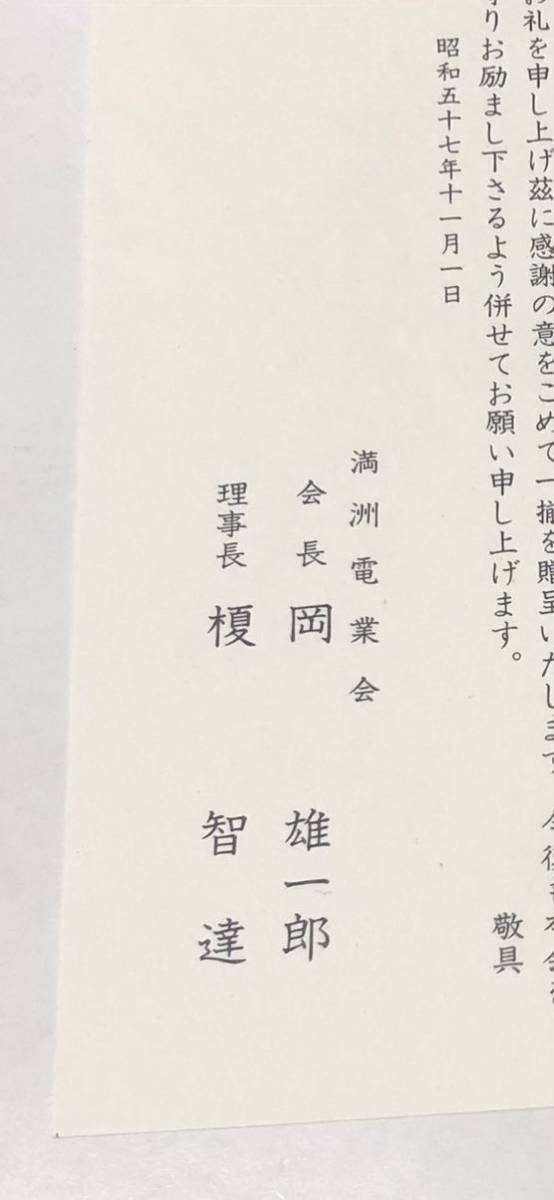 お礼を申し上げ茲に感謝の意をこめて一摘を贈呈いたします 今後も本会を
りお励まし下さるよう併せてお願い申し上げます。
敬具
昭和五十七年十一月一日
満洲電業会
会長 岡 雄一郎
理事長 榎 智達